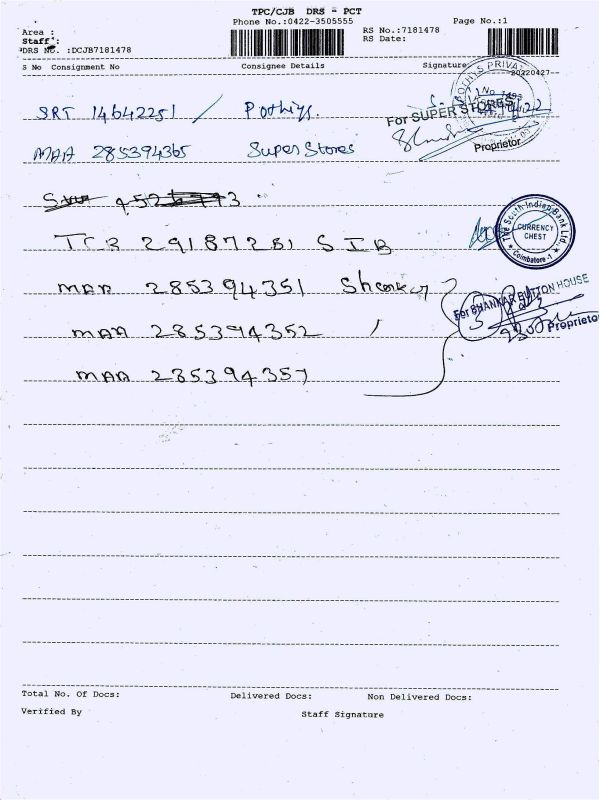 TPC/CJB DRS - PCT
Phone No.:0422-3505555
Page No.:1
Area :
Staff :
DRS No. :DCJB7181478
RS No.:7181478
RS Date:
S No Consignment No
Consignee Details
Signature
20220427
SRT 14642251 / Pothys.
POTHYS PRIVAT
For SUPER STORES
Proprietor
MAA 285394365 Super Stores
TCR 29187281 SIB
The South Indian Bank Ltd.
CURRENCY
CHEST
Coimbatore -1
MAA 285394351 Shankar
For SHANKAR BUTTON HOUSE
Proprietor
MAA 285394352 /
MAA 285394357
Total No. Of Docs:
Delivered Docs:
Non Delivered Docs:
Verified By
Staff Signature